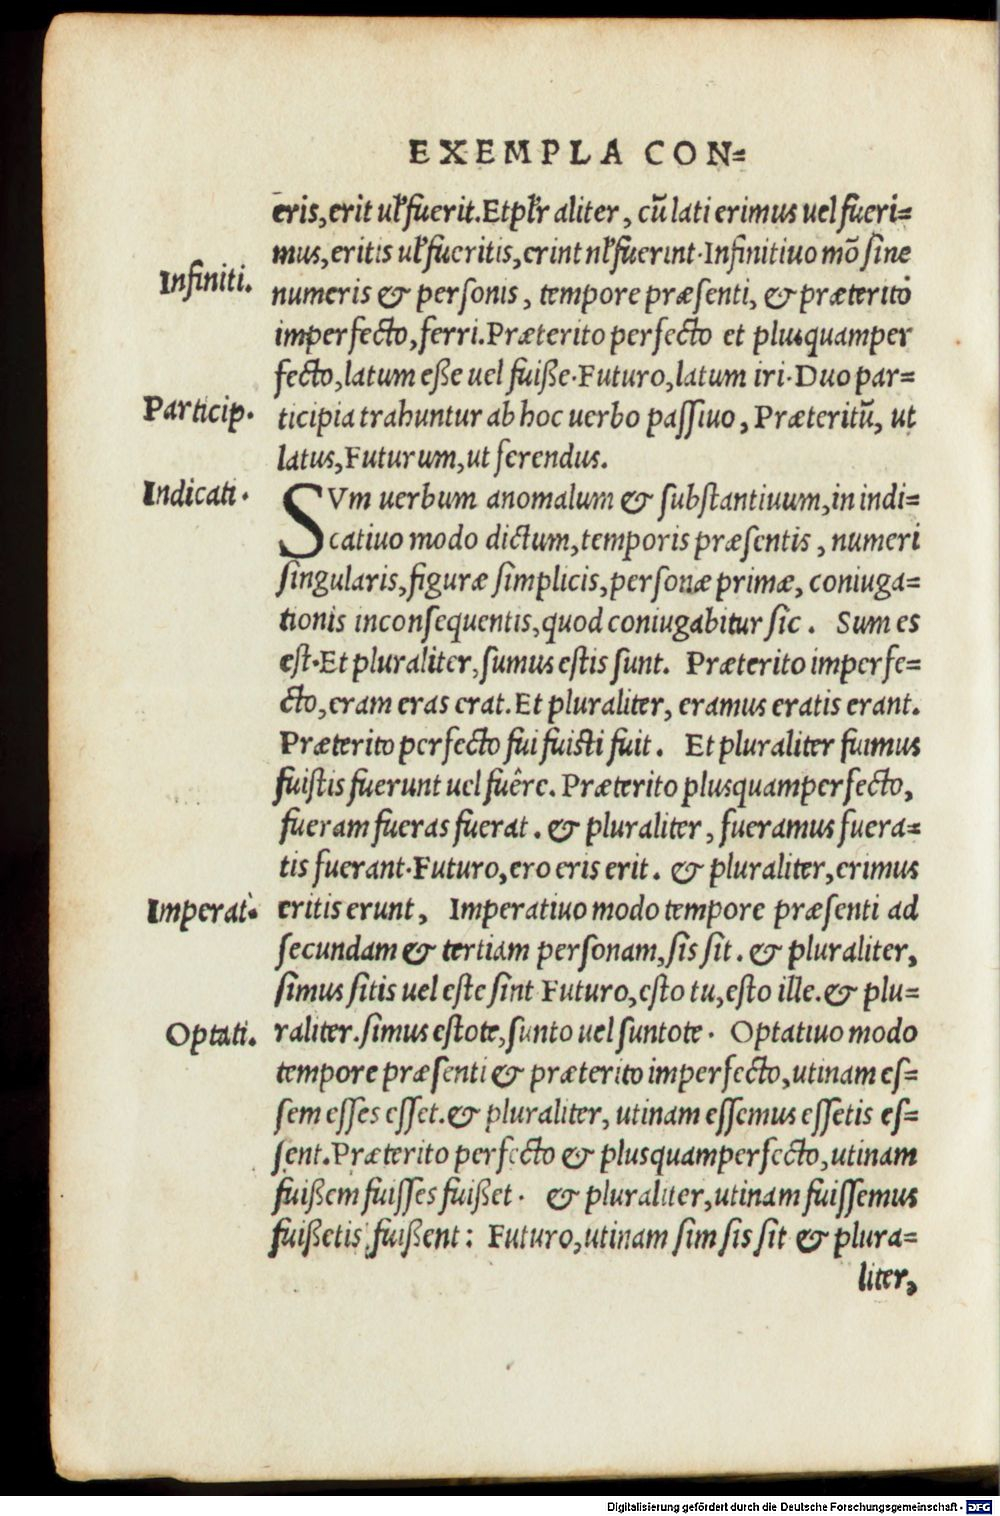 EXEMPLA CON=
eris, erit ul' fuerit. Et pl'r aliter, cū lati erimus uel fueri=
mus, eritis ul' fueritis, erint nl' fuerint. Infinitiuo mō sine
Infiniti.
numeris & personis, tempore præsenti, & præterito
imperfecto, ferri. Præterito perfecto et plusquamper
fecto, latum eße uel fuiße. Futuro, latum iri. Duo par=
Particip.
ticipia trahuntur ab hoc uerbo paſſiuo, Præteritū, ut
latus, Futurum, ut ferendus.
Indicati.
SVm uerbum anomalum & ſubſtantiuum, in indi=
catiuo modo dictum, temporis præſentis, numeri
ſingularis, figuræ ſimplicis, perſonæ primæ, coniuga=
tionis inconſequentis, quod coniugabitur ſic. Sum es
eſt. Et pluraliter, ſumus eſtis ſunt. Præterito imperfe=
cto, eram eras erat. Et pluraliter, eramus eratis erant.
Præterito perfecto fui fuiſti fuit. Et pluraliter fuimus
fuiſtis fuerunt uel fuêre. Præterito plusquamperfecto,
fueram fueras fuerat. & pluraliter, fueramus fuera=
tis fuerant. Futuro, ero eris erit. & pluraliter, erimus
Imperat.
eritis erunt, Imperatiuo modo tempore præſenti ad
ſecundam & tertiam perſonam, ſis ſit. & pluraliter,
ſimus ſitis uel eſte ſint Futuro, eſto tu, eſto ille. & plu=
Optati.
raliter. ſimus eſtote, ſunto uel ſuntote. Optatiuo modo
tempore præſenti & præterito imperfecto, utinam eſ=
ſem eſſes eſſet. & pluraliter, utinam eſſemus eſſetis eſ=
ſent. Præterito perfecto & plusquamperfecto, utinam
fuißem fuiſſes fuißet. & pluraliter, utinam fuiſſemus
fuißetis fuißent: Futuro, utinam ſim ſis ſit & plura=
liter,
Digitalisierung gefördert durch die Deutsche Forschungsgemeinschaft - DFG